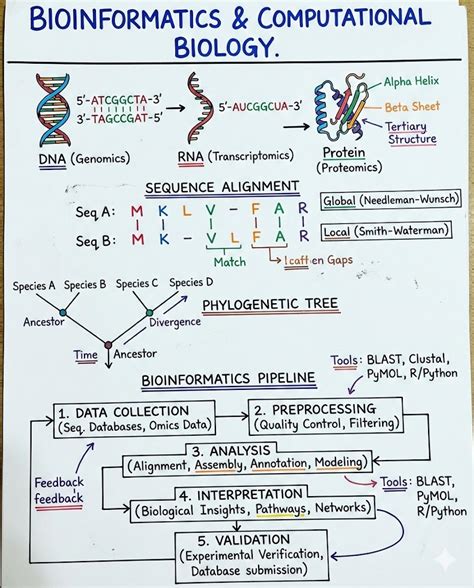 BIOINFORMATICS & COMPUTATIONAL
BIOLOGY.
5'-ATCGGCTA-3'
3'-TAGCCGAT-5'
5'-AUCGGCUA-3'
Alpha Helix
Beta Sheet
Tertiary
Structure
DNA (Genomics)
RNA (Transcriptomics)
Protein
(Proteomics)
SEQUENCE ALIGNMENT
Seq A: M K L V - F A R
Global (Needleman-Wunsch)
Seq B: M K - V L F A R
Local (Smith-Waterman)
Match
Icaff en Gaps
Species A
Species B
Species C
Species D
PHYLOGENETIC TREE
Ancestor
Divergence
Time
Ancestor
BIOINFORMATICS PIPELINE
Tools: BLAST, Clustal,
PyMOL, R/Python
1. DATA COLLECTION
(Seq. Databases, Omics Data)
2. PREPROCESSING
(Quality Control, Filtering)
3. ANALYSIS
(Alignment, Assembly, Annotation, Modeling)
Feedback
feedback
Tools: BLAST,
PyMOL,
R/Python
4. INTERPRETATION
(Biological Insights, Pathways, Networks)
5. VALIDATION
(Experimental Verification,
Database submission)